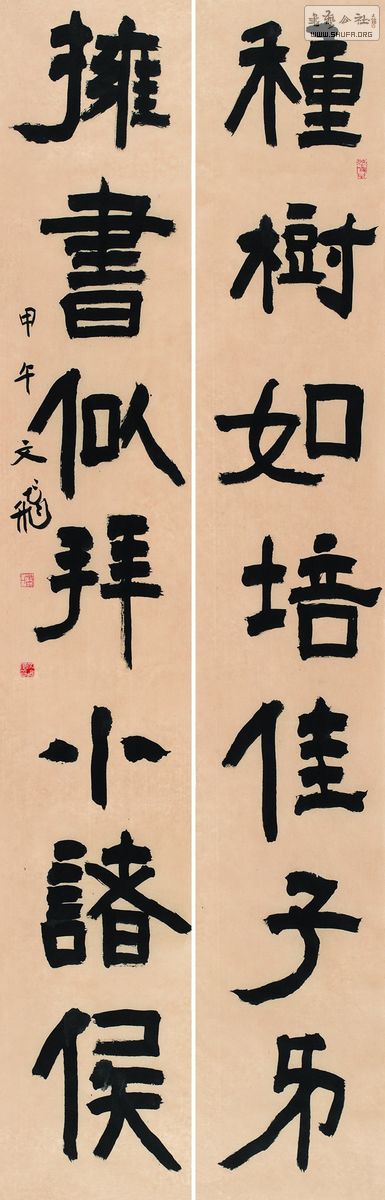 種樹如培佳子弟
擁書似拜小諸侯
甲午文飛
书法公社
WWW.SHUFA.ORG